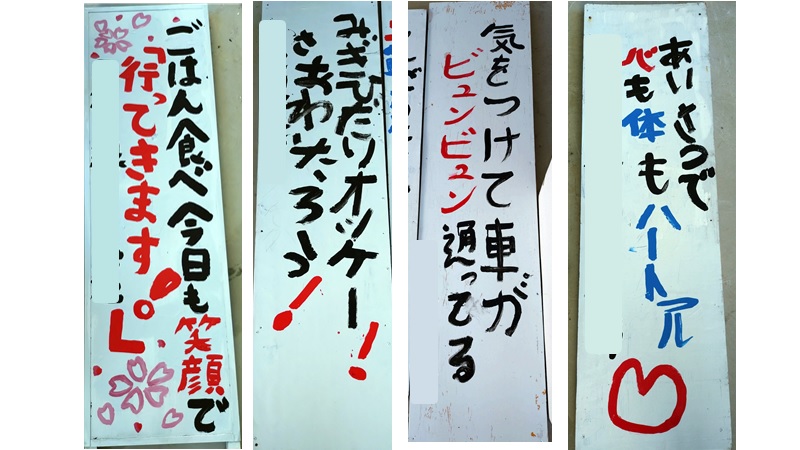 ごはん食べ今日も笑顔で
「行ってきます!」
みぎひだりオッケー!!
さあわたろう!
気をつけて車が
ビュンビュン通ってる
あいさつで
心も体もハートフル